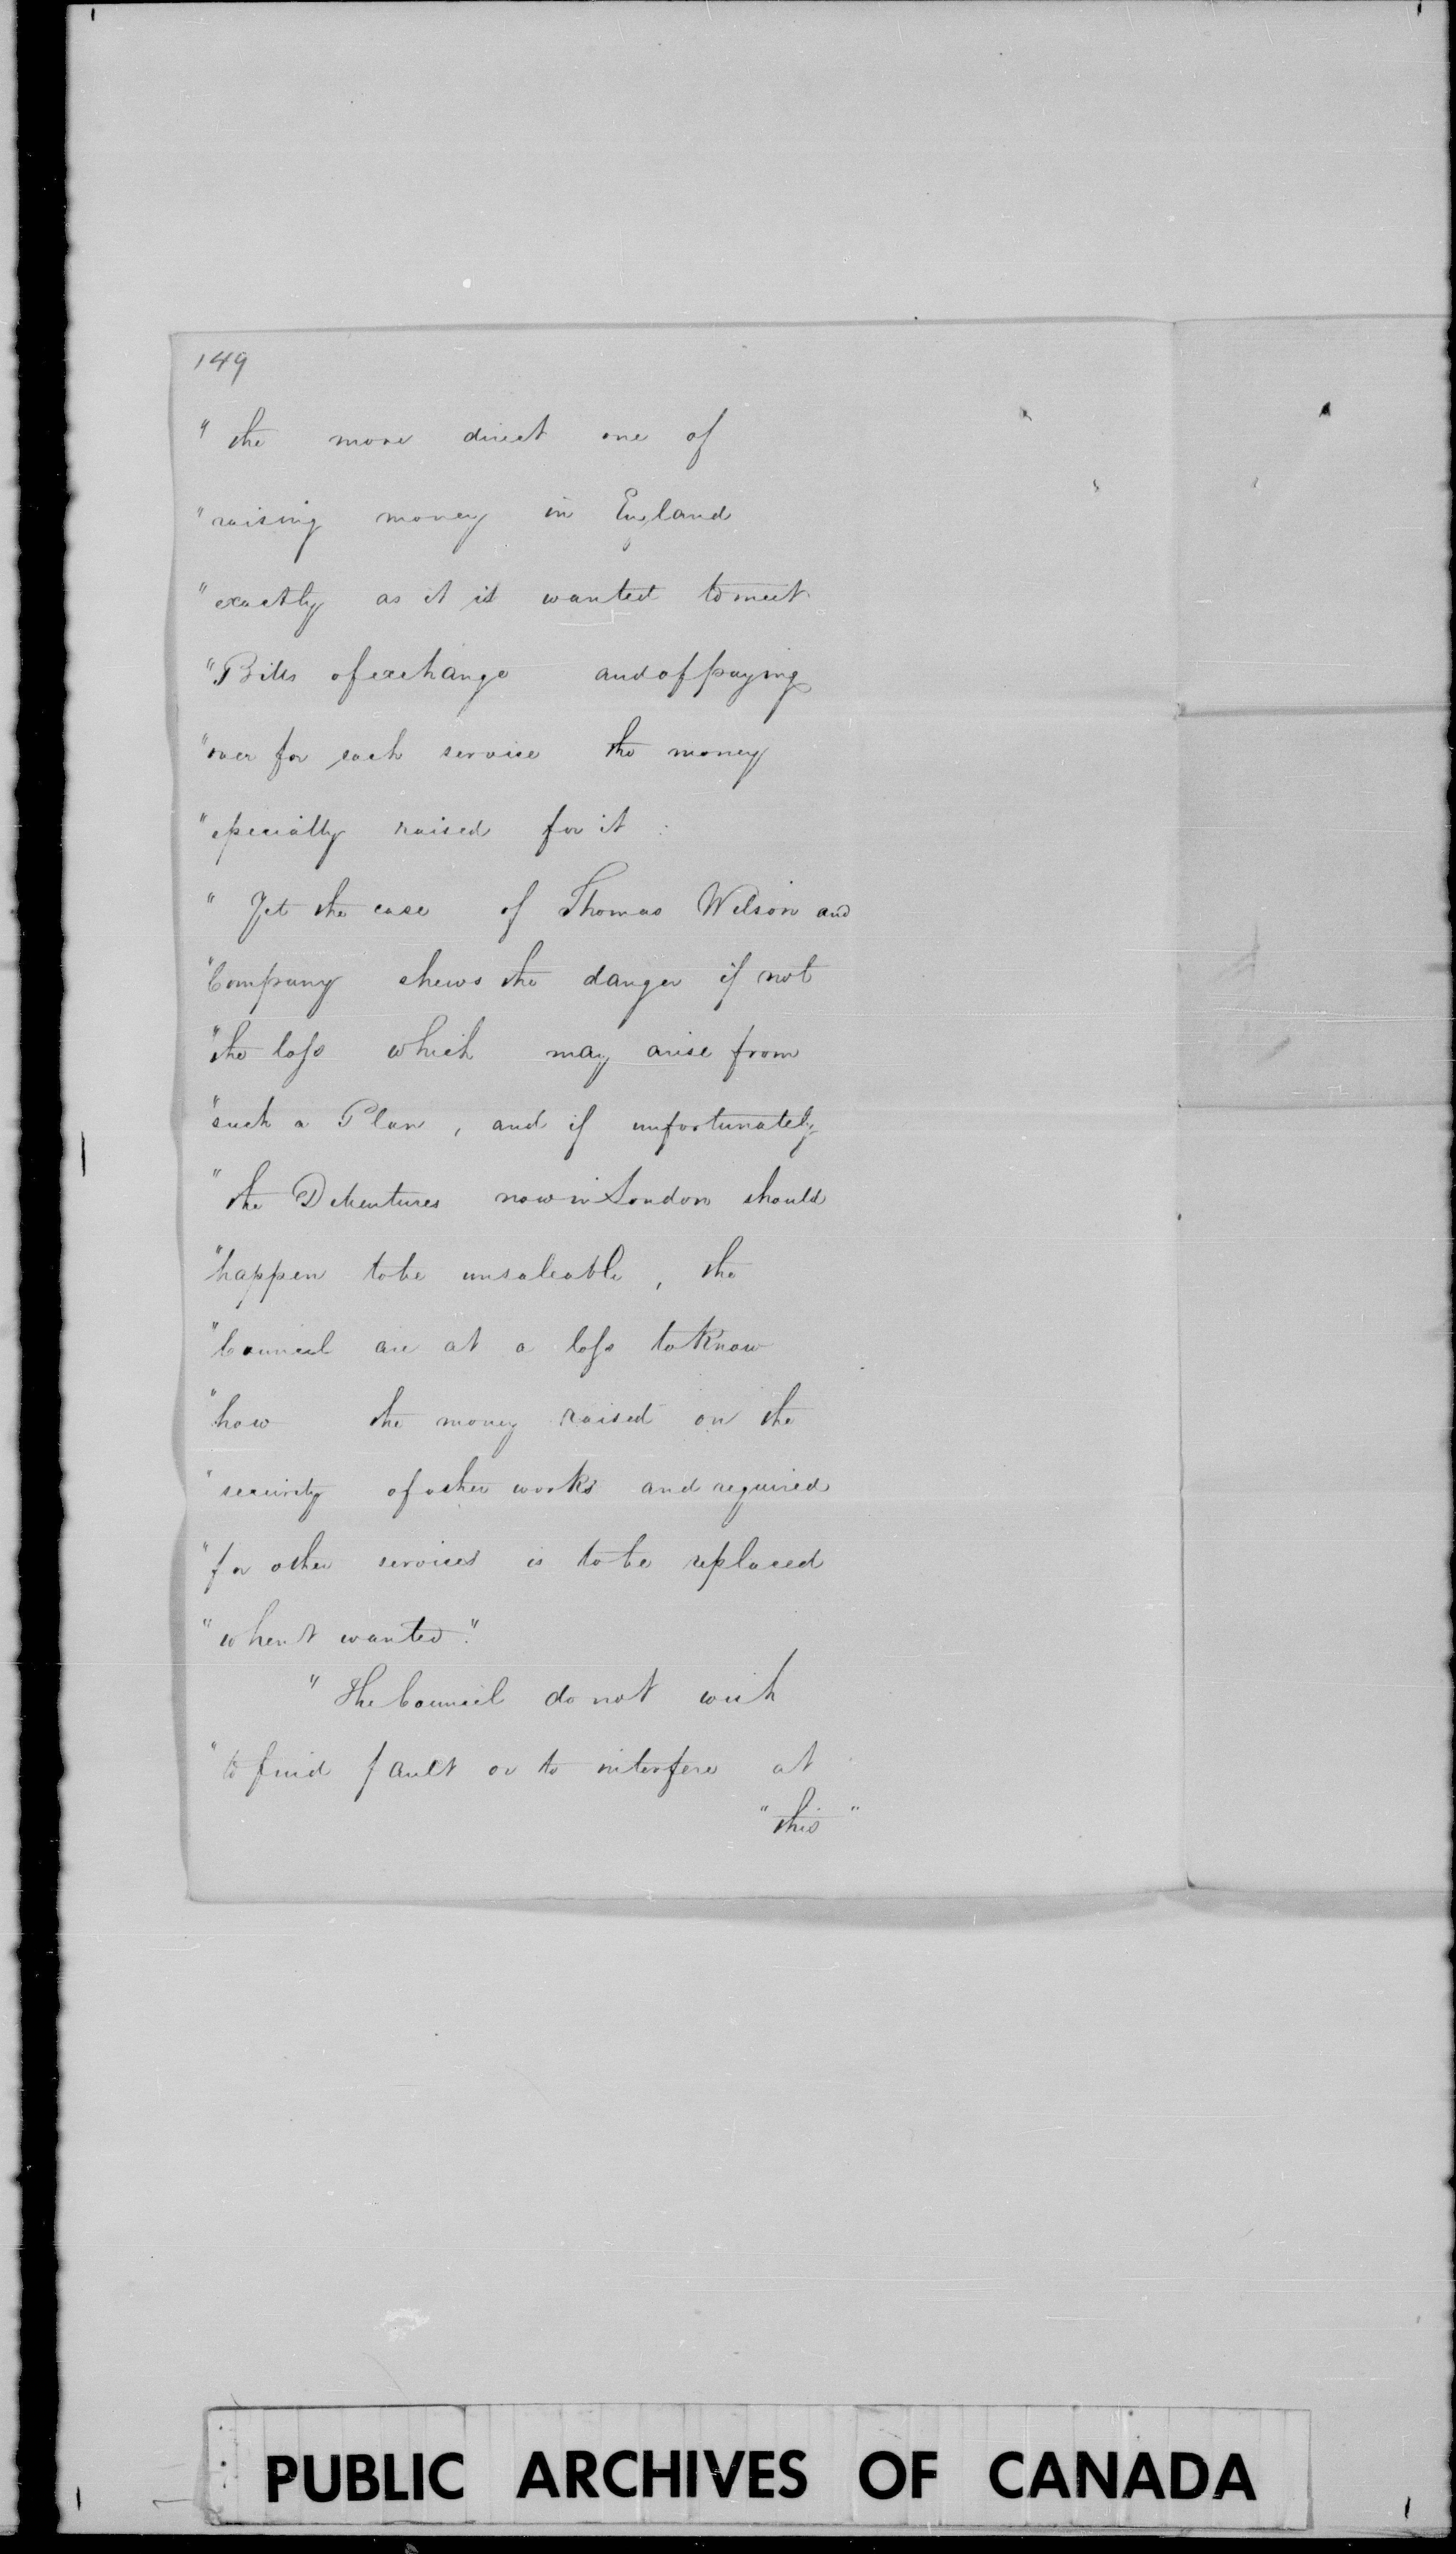 149
" the more direct one of
" raising money in England
" exactly as it is wanted to meet
" Bills of exchange and of paying
" over for each service the money
" specially raised for it :
" Yet the case of Thomas Wilson and
" Company shews the danger if not
" the loss which may arise from
" such a Plan, and if unfortunately
" the Debentures now in London should
" happen to be unsaleable, the
" Council are at a loss to know
" how the money raised on the
" security of other works and required
" for other services is to be replaced
" when't wanted."
" The Council do not wish
" to find fault or to interfere at
" this "
PUBLIC ARCHIVES OF CANADA